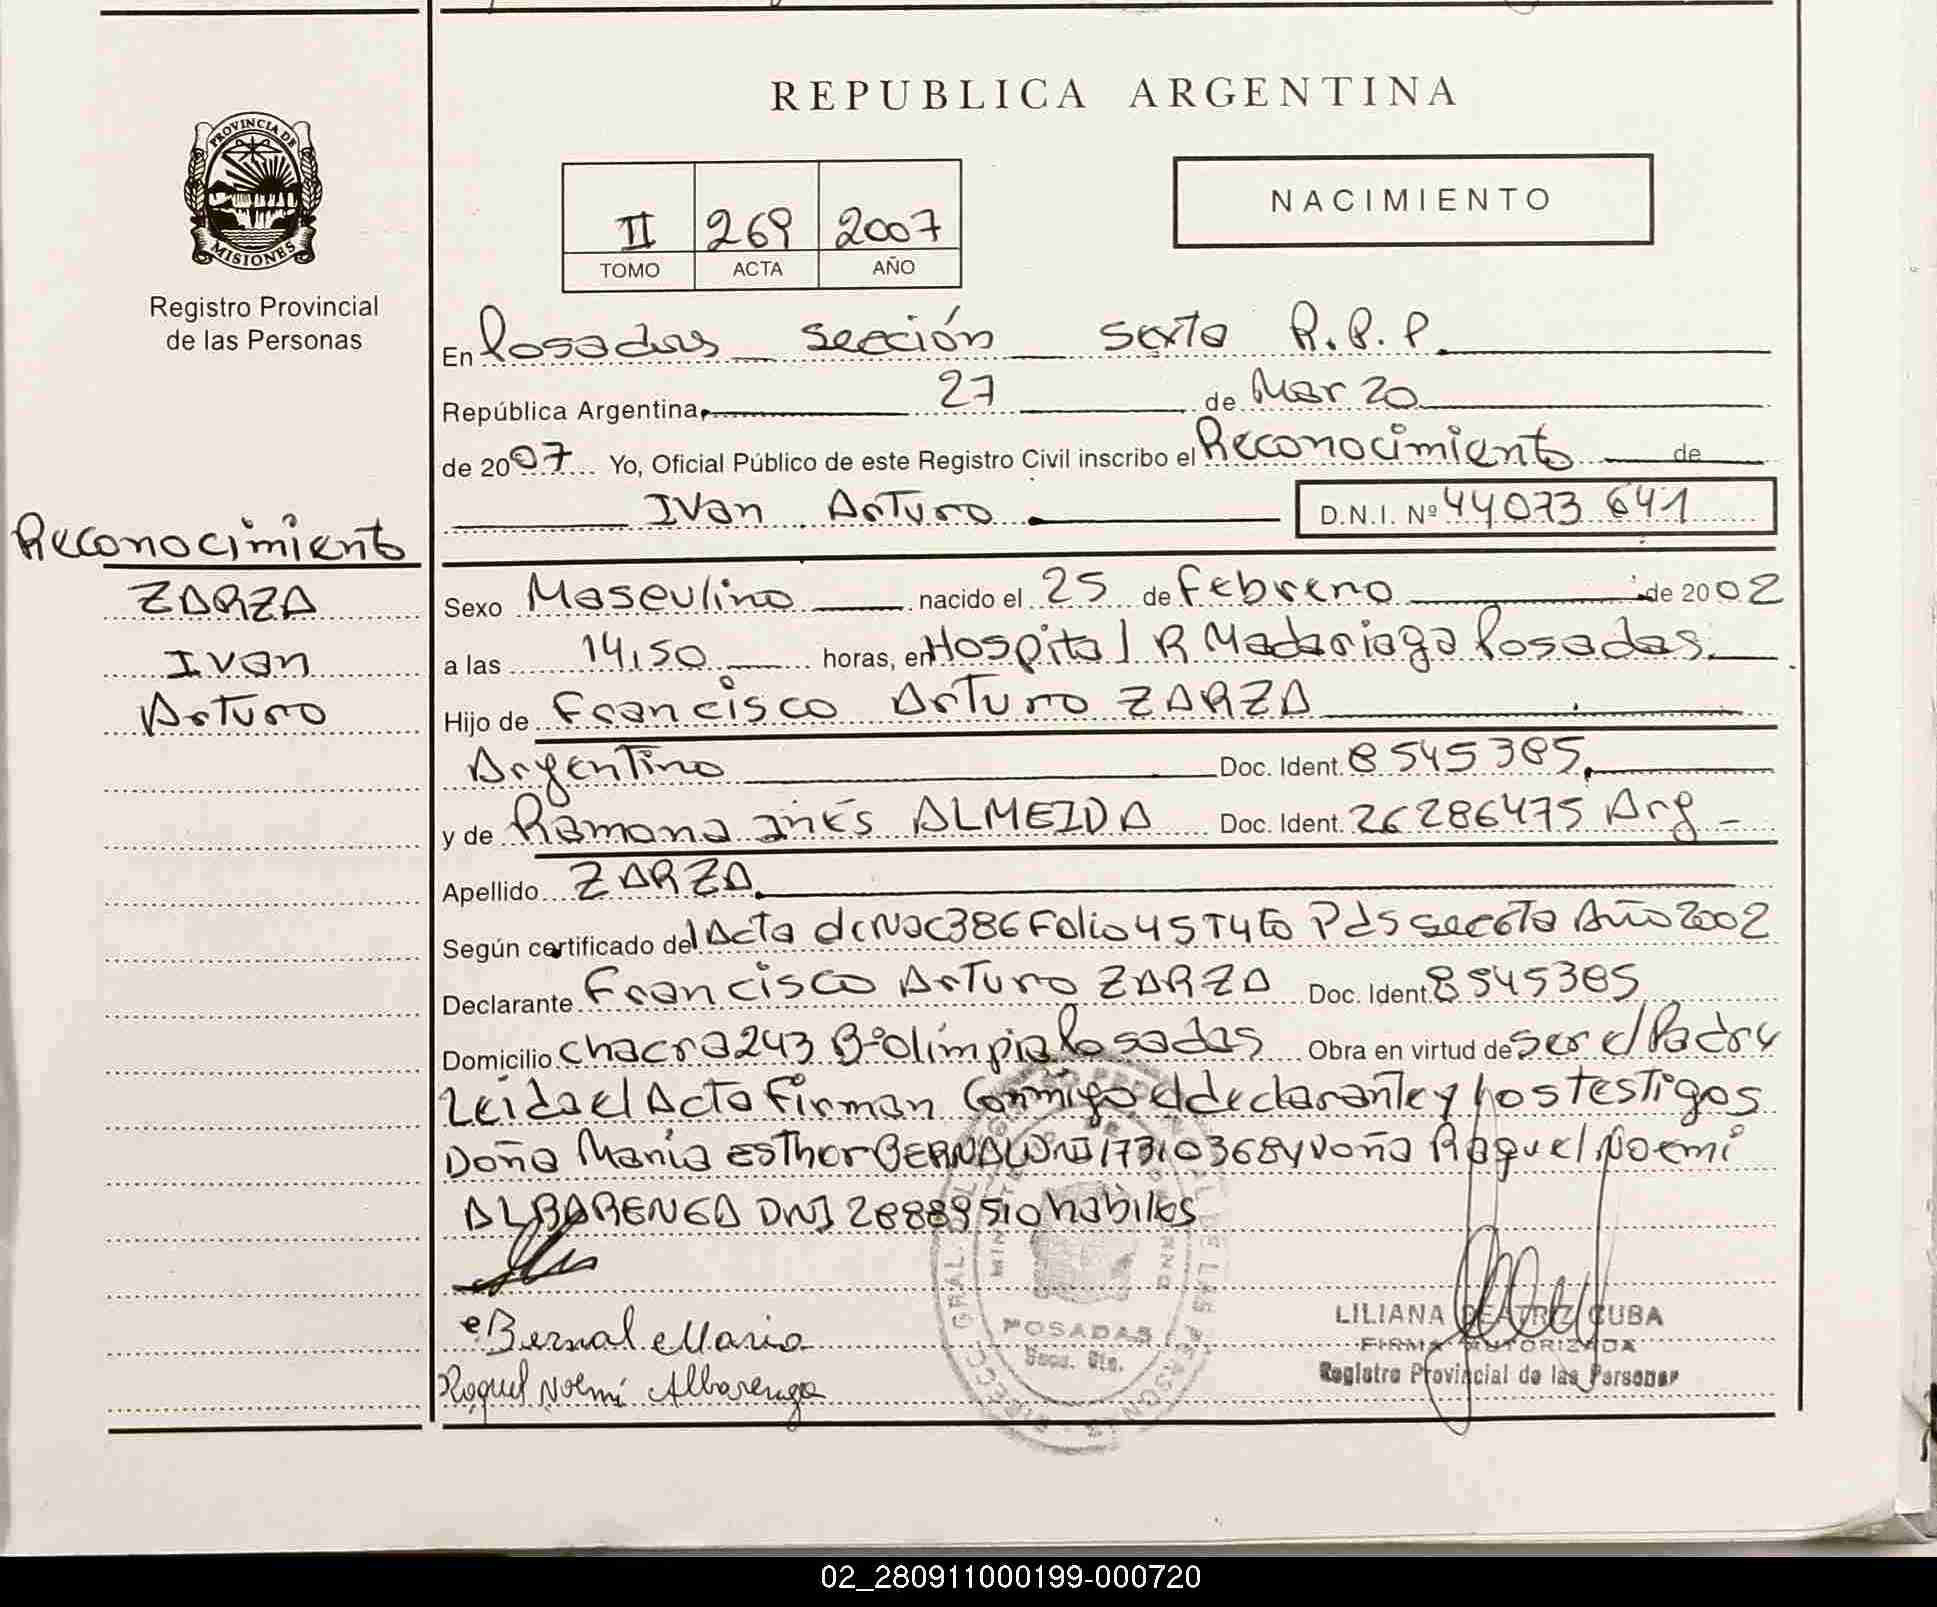 REPUBLICA ARGENTINA
PROVINCIA DE
MISIONES
Registro Provincial
de las Personas
II 269 2007
TOMO ACTA AÑO
NACIMIENTO
En Posadas sección sexta R.P.P.
República Argentina, 27 de Marzo
de 2007 Yo, Oficial Público de este Registro Civil inscribo el Reconocimiento de
Ivan Arturo D.N.I. Nº 44073 641
Reconocimiento
ZARZA
Ivan
Arturo
Sexo Masculino nacido el 25 de febrero de 2002
a las 14,50 horas, en Hospital R Madariaga Posadas.
Hijo de Francisco Arturo ZARZA
Argentino Doc. Ident. 8545385
y de Ramona inés ALMEIDA Doc. Ident. 26286475 Arg
Apellido ZARZA
Según certificado del Acta de Nac 386 Folio 45 Pds Año 2002
Declarante Francisco Arturo ZARZA Doc. Ident 8545385
Domicilio chacra 243 Bº Olimpia Posadas Obra en virtud de ser el Padre
Leida el Acta Firman Conmigo el declarante y los testigos
Doña Maria Esther BERNAL DNI 17310368 y Doña Raquel Noemi
ALBARENGA DNI 28889510 habiles
Bernal Maria
Raquel Noemí Albarenga
POSADAS
LILIANA BEATRIZ CUBA
FIRMA AUTORIZADA
Registro Provincial de las Personas
02_280911000199-000720